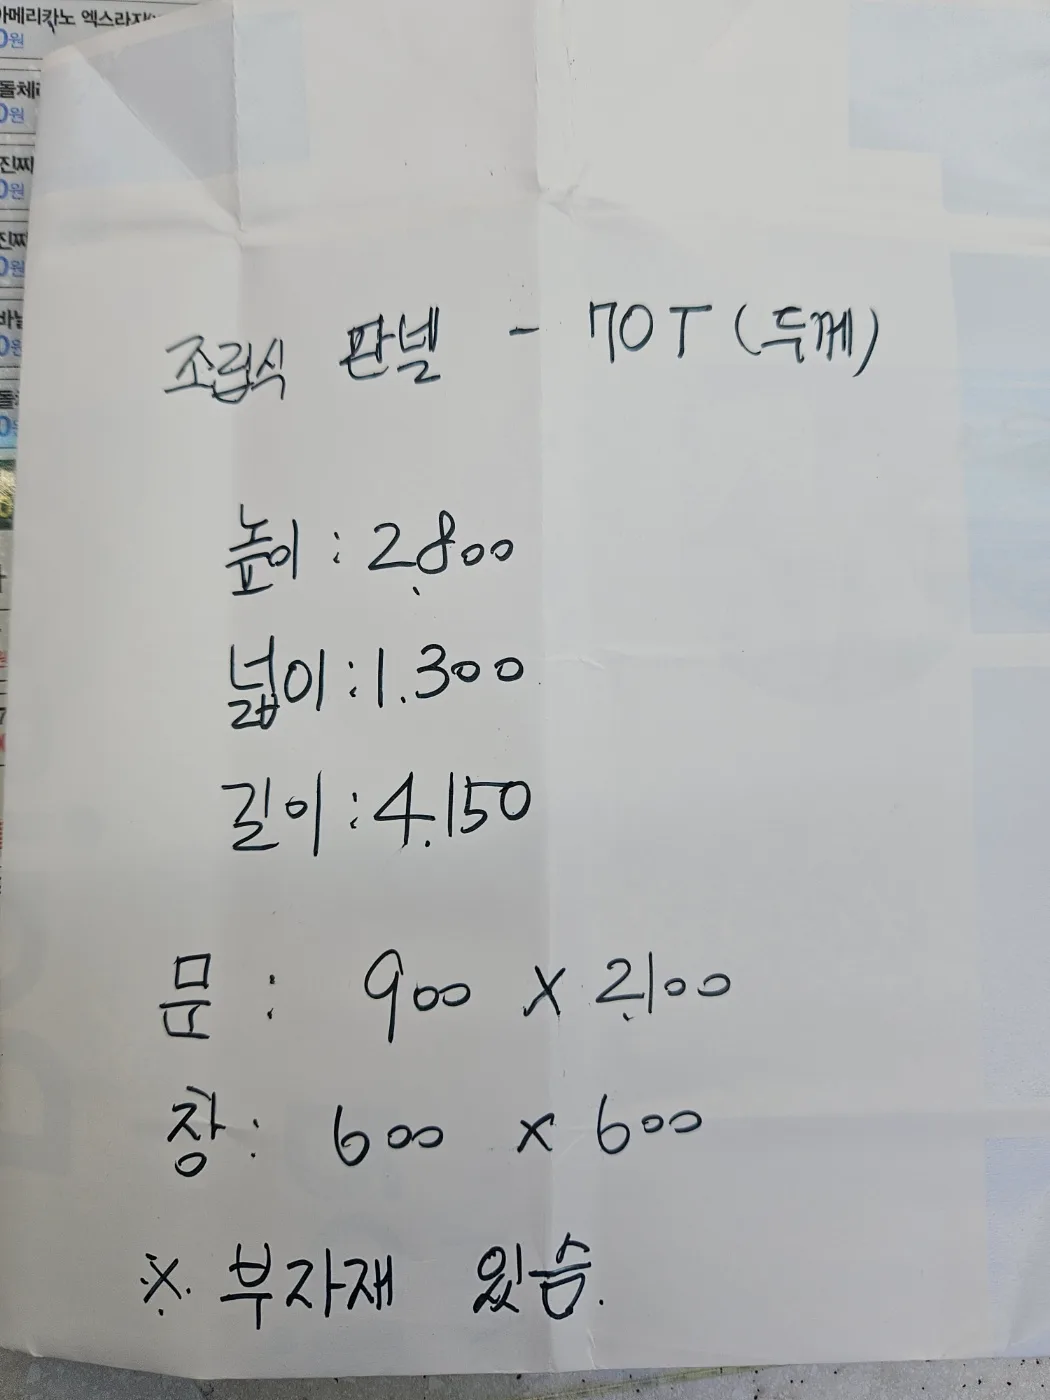 아메리카노 엑스라지
0원
돌체
0원
진짜
0원
진짜
0원
바닐
0원
조립식 판넬 - 70T (두께)
높이 : 2.800
넓이 : 1.300
길이 : 4.150
문 : 900 x 2.100
창 : 600 x 600
※ 부자재 있슴.